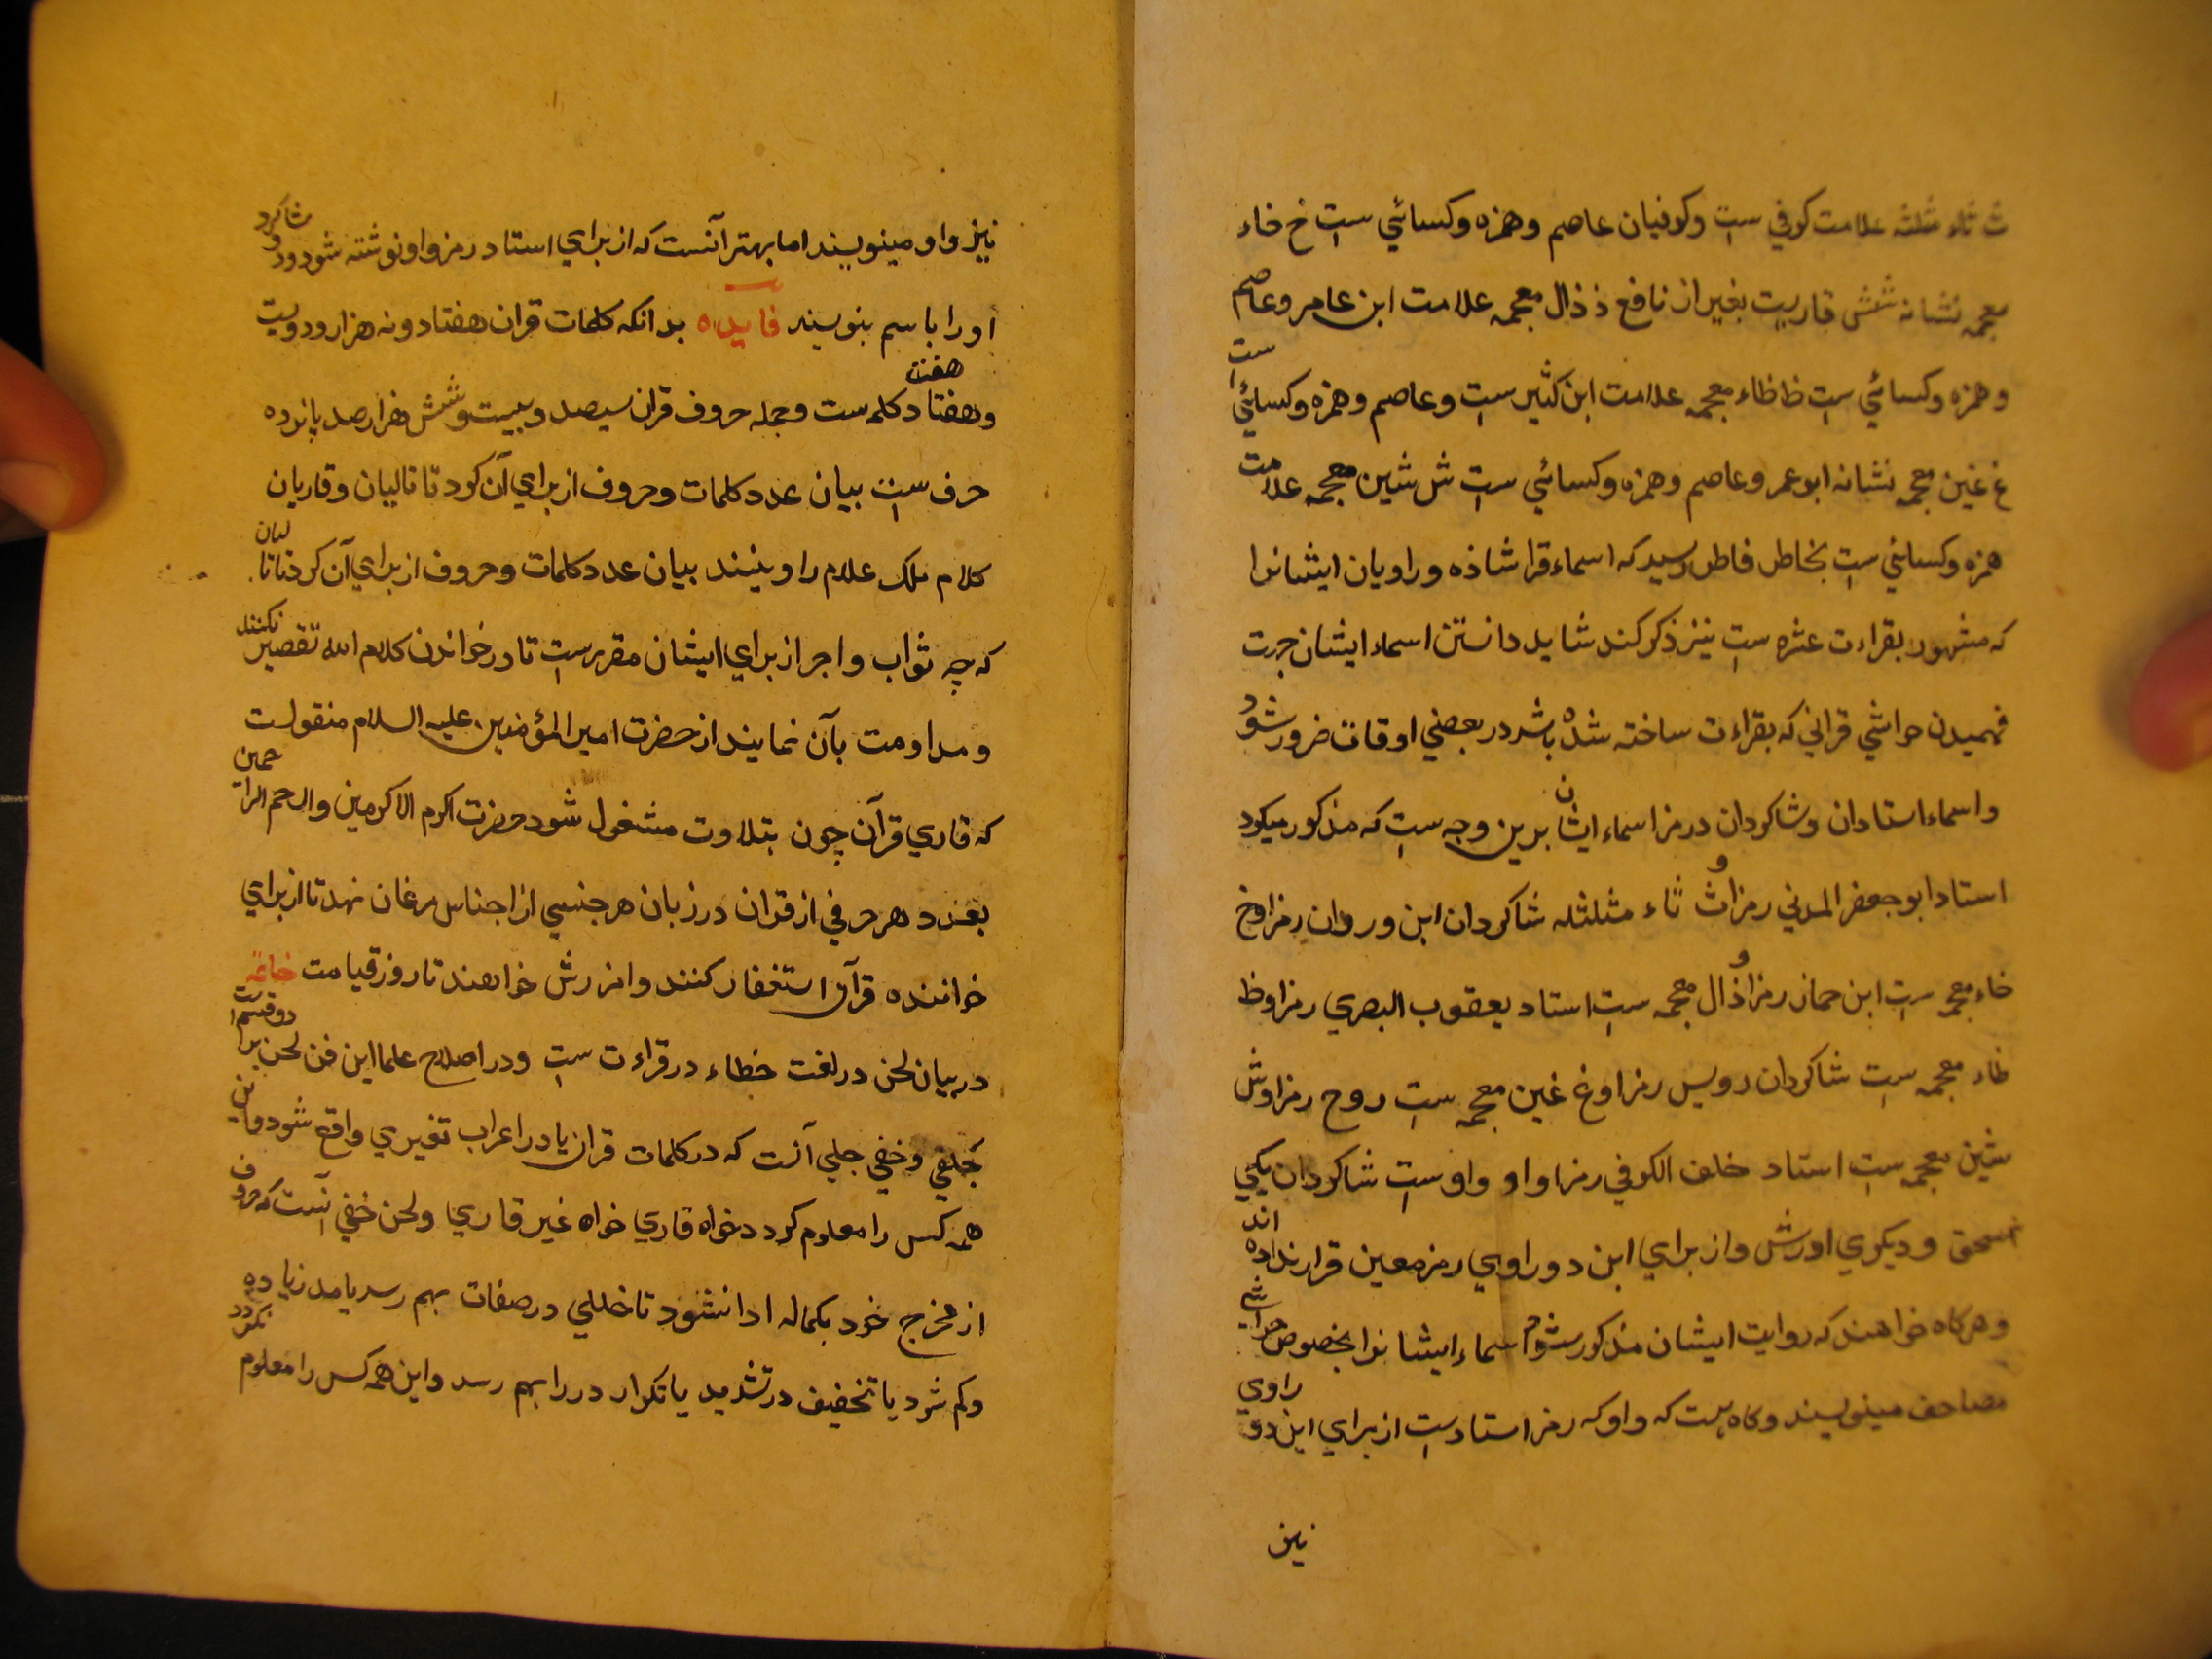 ث ثاء مثلثه علامت کوفي ست وکوفیان عاصم وهمزه وکسائي ست خ خاء
معجمه نشانه شش قاریست بغیر از نافع ذ ذال معجمه علامت ابن عامر وعاصم
وهمزه وکسائي ست ظ ظاء معجمه علامت ابن کثیر ست وعاصم وهمزه وکسائي ست
غ غین معجمه نشانه ابوعمر وعاصم وهمزه وکسائي ست ش شین معجمه علامت
همزه وکسائي ست بخاطر فاطر رسید که اسماء قرا شاذه وراویان ایشانرا
که مشهور بقراءت عشره ست نیز ذکر کند شاید دانستن اسماء ایشان جهت
فهمیدن حواشي قراني که بقراءت ساخته شده باشد در بعضي اوقات ضرور شود
واسماء استادان وشاکردان ورمز اسماء ایشان برین وجه ست که مذکور میکردد
استاد ابو جعفر المدني رمز او ث ثاء مثلثله شاکردان ابن وردان رمز او خ
خاء معجمه ست ابن جماز رمز او ذال معجمه ست استاد یعقوب البصري رمز او ظ
ظاء معجمه ست شاکردان رویس رمز او غ غین معجمه ست روح رمز او ش
شین معجمه ست استاد خلف الکوفي رمز او او واوست شاکردان یکي
اسحق ودیکري اورش واز براي ابن دو راوي رمز معین قرار نداده اند
وهرکاه خواهند که روایت ایشان مذکور شود اسماء ایشانرا بخصوص حواشي
مصاحف مینویسند وکاه هست که واو که رمز استادست از براي این دو راوي
نیز
نیز واو مینویسند اما بهتر آنست که از براي استاد رمز واو نوشته شود ودو شاکرد
اورا باسم بنویسند فایده بدانکه کلمات قران هفتاد ونه هزار ودویست
وهفتاد هفت کلمه ست وجمله حروف قران سیصد وبیست وشش هزار صد پانزده
حرف ست بیان عدد کلمات وحروف از براي آن کرد تا تالیان وقاریان
کلام ملک علام را وبینند بیان عدد کلمات وحروف از براي آن کرد تا تالیان
که چه ثواب واجر از براي ایشان مقررست تا در خواندن کلام الله تقصیر نکنند
ومداومت بآن نمایند از حضرت امیر المؤمنین علیه السلام منقولست
که قاري قرآن چون بتلاوت مشغول شود حضرت اکرم الاکرمین وارحم الراحمین
بعدد هر حرفي از قران در زبان هر جنسي از اجناس مرغان نهد تا از براي
خواننده قرآن استغفار کنند وامرزش خواهند تا روز قیامت خاتمه
در بیان لحن در لغت خطاء در قراءت ست ودر اصلاح علما این فن لحن بر دو قسم است
جلي وخفي جلي آنست که در کلمات قران یا در اعراب تغیري واقع شود واین
همه کس را معلوم کردد خواه قاري خواه غیر قاري ولحن خفي آنست که حروف
از مخرج خود بکماله ادا نشود تا خللي در صفات بهم رسد یا مد زیاده
وکم شود یا تخفیف در تشدید یا تکرار در را بهم رسد واین همه کس را معلوم نکردد